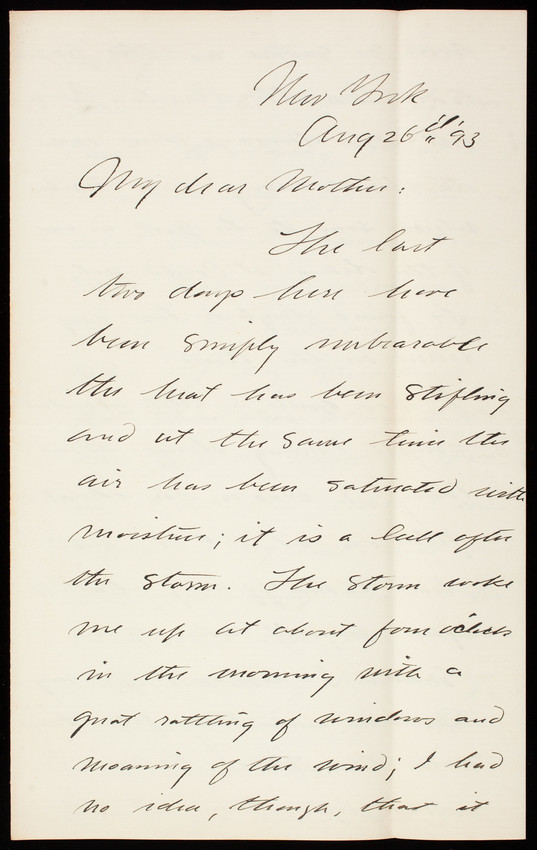 New York
Aug 26th '93
My dear Mother:
The last
two days here have
been simply unbearable
the heat has been stifling
and at the same time the
air has been saturated with
moisture; it is a lull after
the storm. The storm woke
me up at about four o'clock
in the morning with a
great rattling of windows and
moaning of the wind; I had
no idea, though, that it